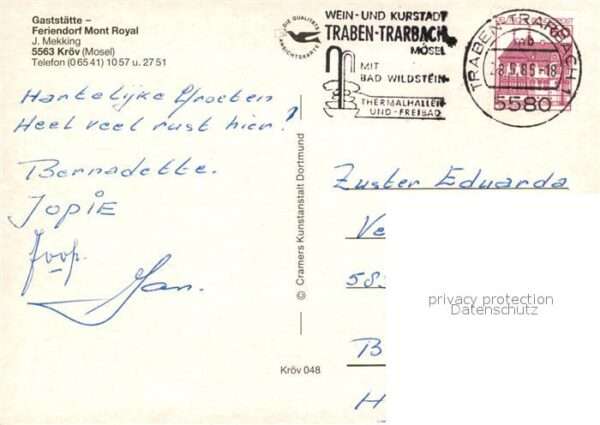 Gaststätte –
Feriendorf Mont Royal
J. Mekking
5563 Kröv (Mosel)
Telefon (0 65 41) 10 57 u. 27 51
DIE QUALITÄTS
ANSICHTSKARTE
WEIN- UND KURSTADT
TRABEN-TRARBACH
MOSEL
MIT
BAD WILDSTEIN
THERMALHALLEN
UND -FREIBAD
TRABEN-TRARBACH 1
mb
-8.5.85-18
5580
Hartelijke Groeten
Heel veel rust hier!
Bernadette.
Jopie
Joop.
Jan.
© Cramers Kunstanstalt Dortmund
Kröv 048
Zuster Eduarda
Ve
58
B
H
privacy protection
Datenschutz